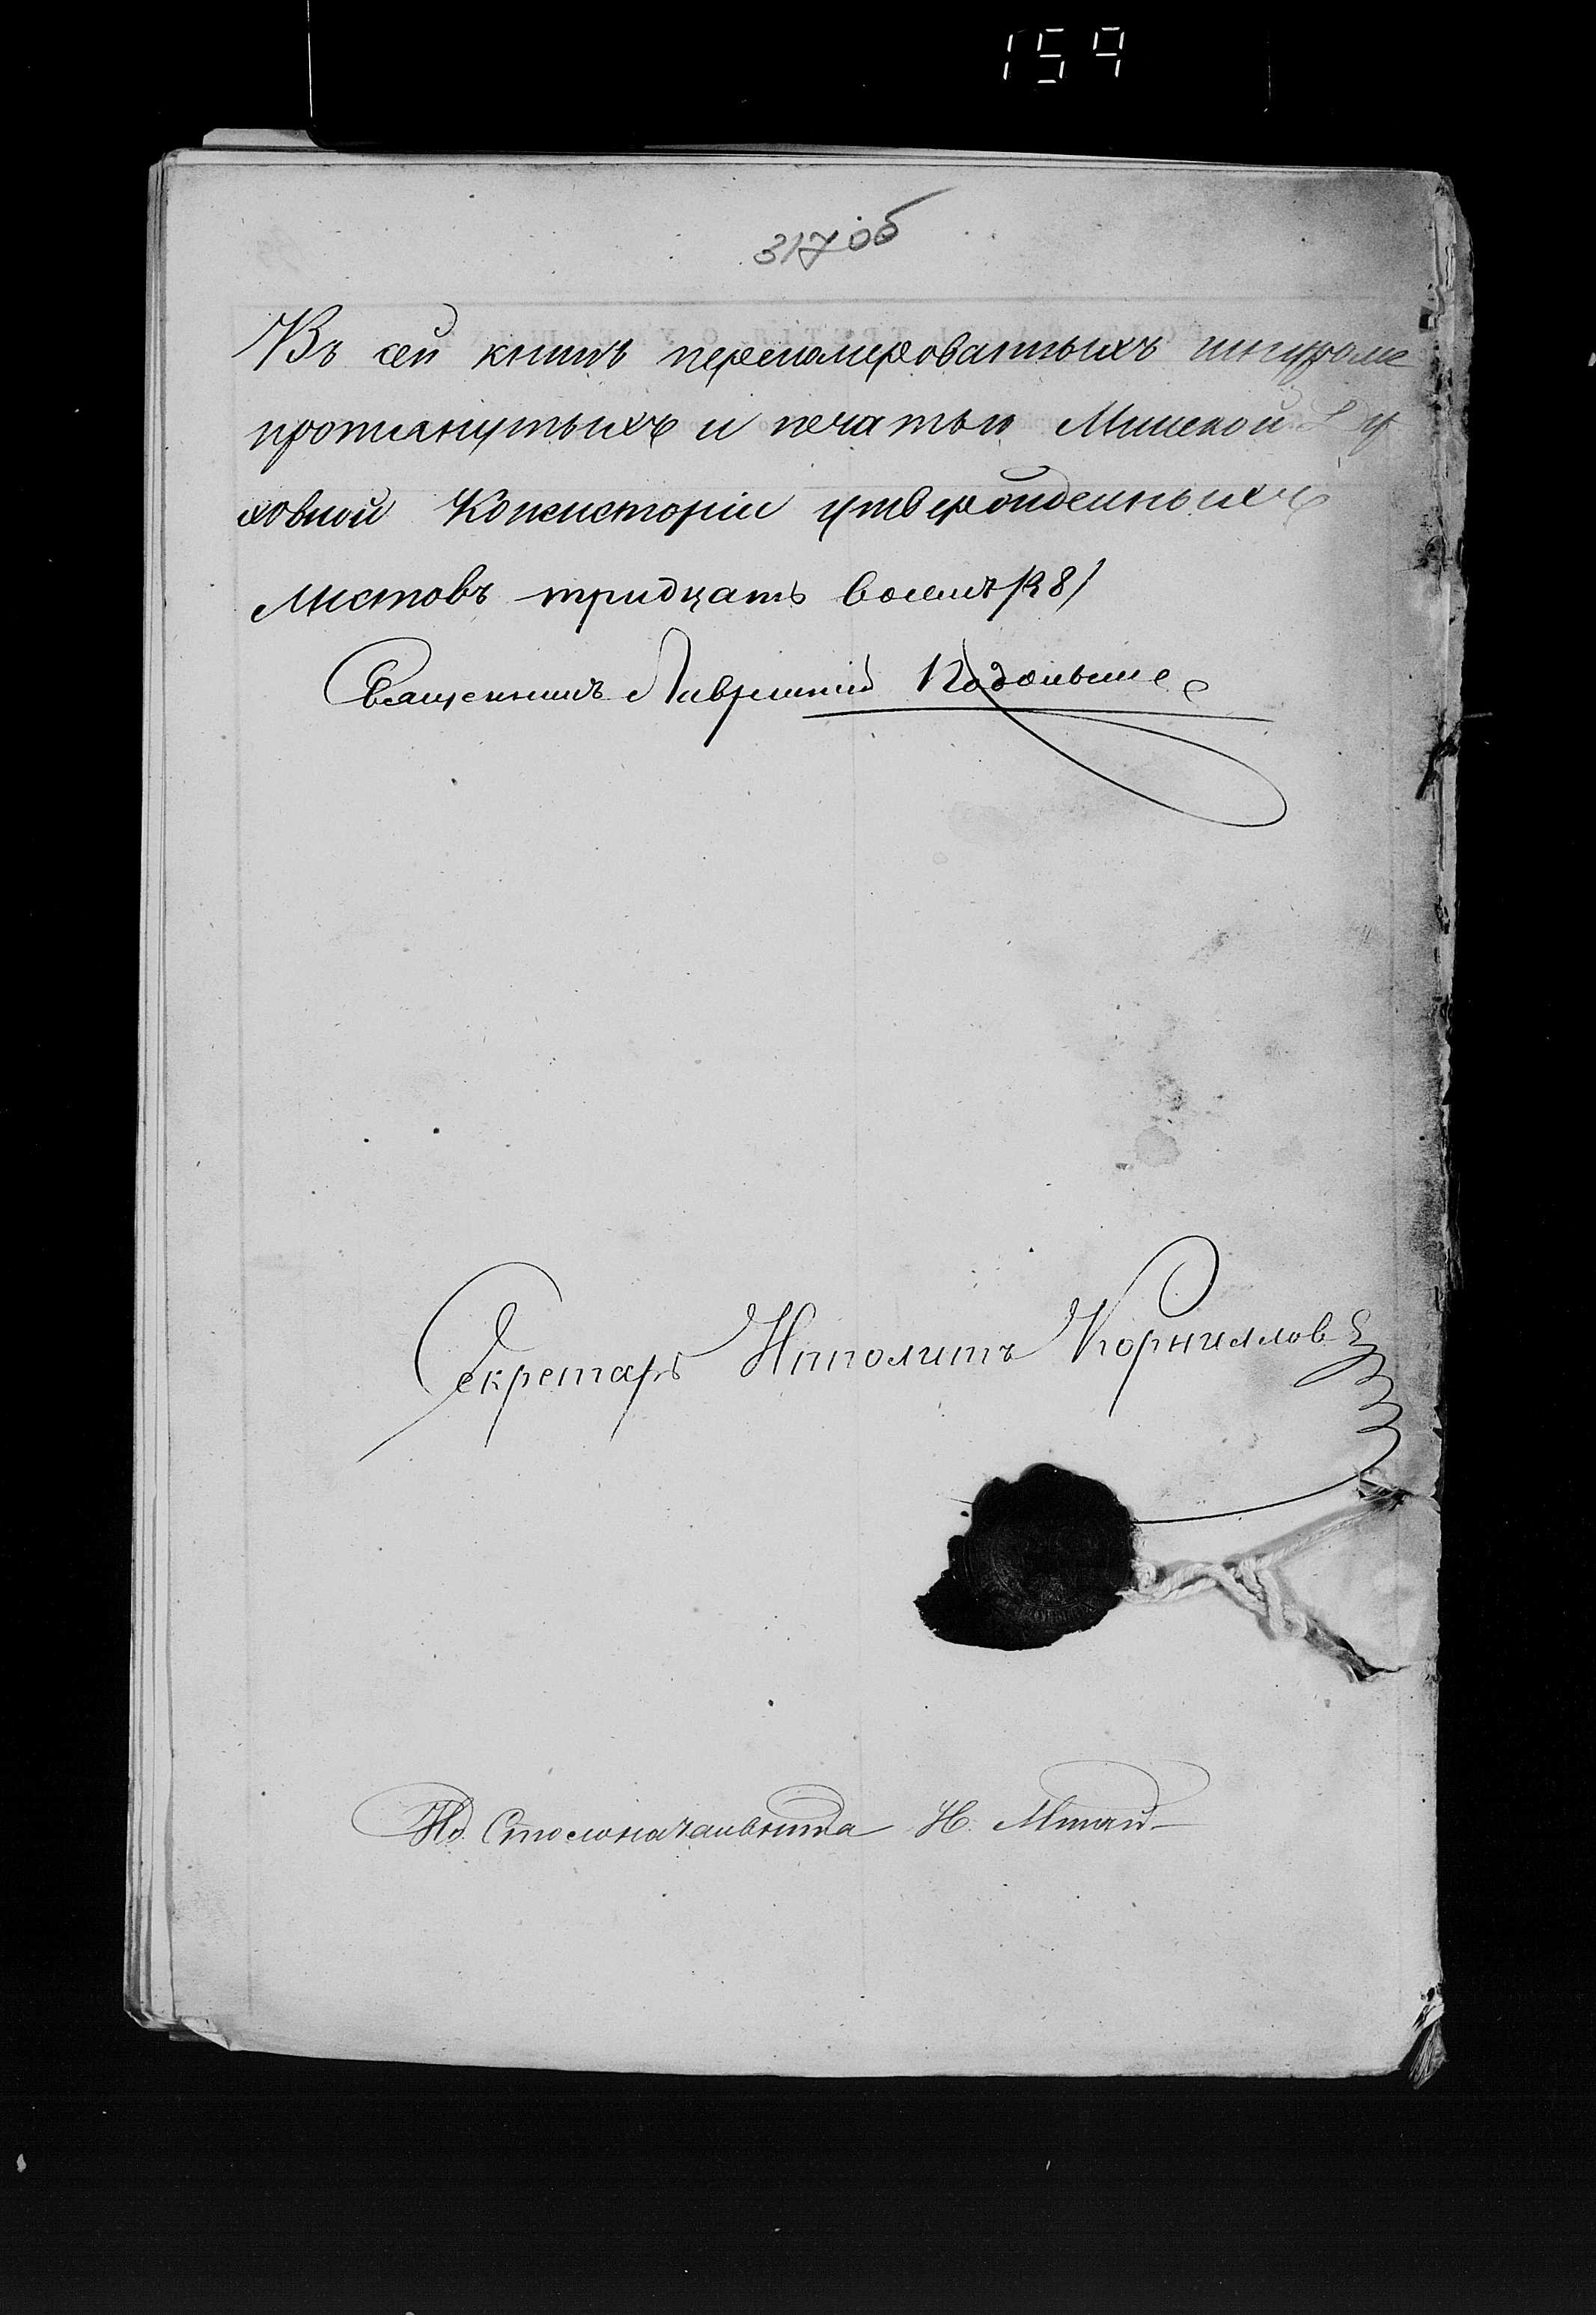 159
317 об
Въ сей книгѣ перенумерованныхъ шнуромъ
протянутыхъ и печатью Минской Ду
ховной Консисторіи утвержденныхъ
листовъ тридцать восемь /38/
Священникъ Лаврентій
Секретарь Ипполитъ Корниловъ
И.д. Столоначальника Н.